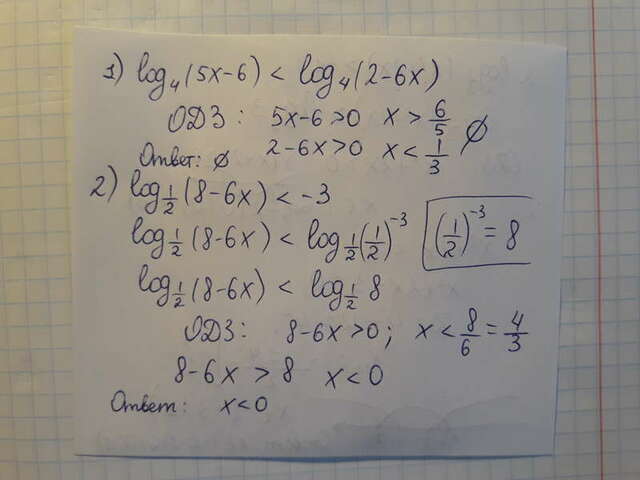 1) log₄(5x-6) < log₄(2-6x)
ОДЗ: 5x-6>0 x > 6/5
2-6x>0 x < 1/3 ∅
Ответ: ∅
2) log_{1/2}(8-6x) < -3
log_{1/2}(8-6x) < log_{1/2}(1/2)⁻³ (1/2)⁻³ = 8
log_{1/2}(8-6x) < log_{1/2} 8
ОДЗ: 8-6x>0; x < 8/6 = 4/3
8-6x > 8 x < 0
Ответ: x<0